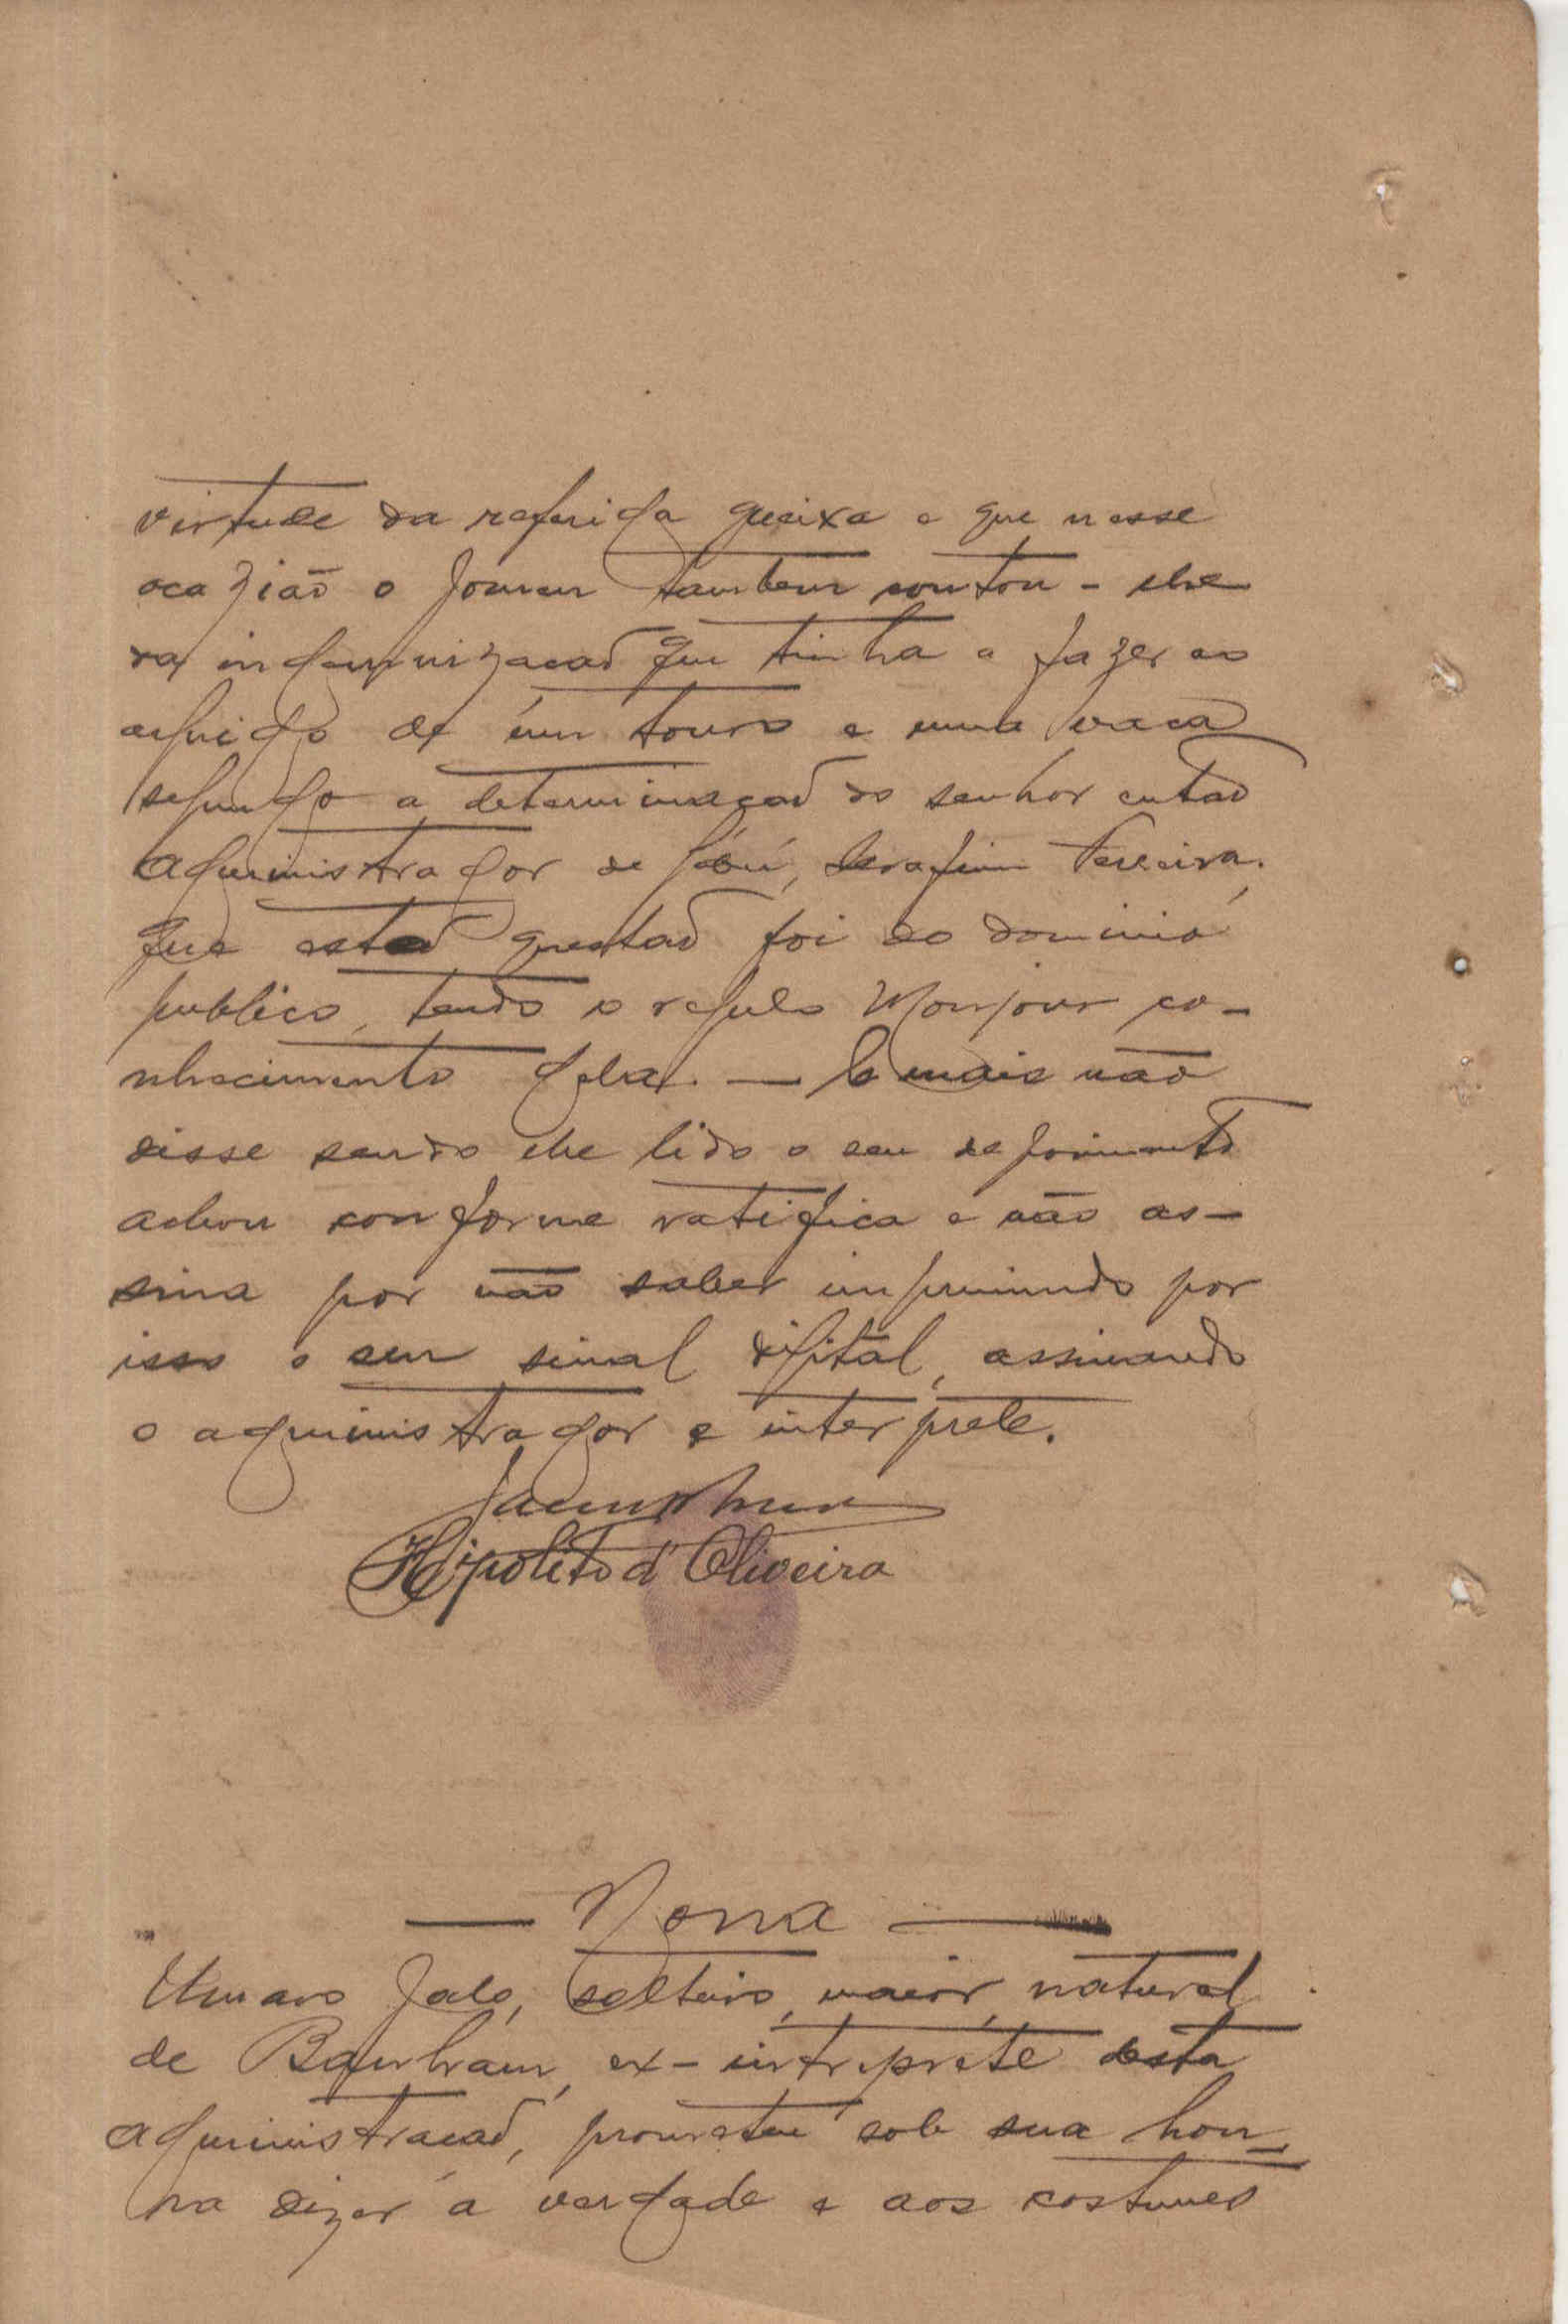 virtude da referida queixa e que nesse
ocazião o Joumem tambem contou-lhe
da indemnização que tinha a fazer ao
arguido de um touro e uma vaca
segundo a determinação do senhor então
administrador de Gabú, Serafim Pereira,
que esta questão foi do dominio
publico, tendo o regulo Monjour co-
nhecimento dela. — E mais não
disse sendo lhe lido o seu depoimento
achou conforme ratifica e não as-
sina por não saber imprimindo por
isso o seu sinal digital, assinando
o administrador e interprete.
Hipolito d'Oliveira
— Nona —
Umaro Jaló, solteiro, maior, natural
de ex-intreprete desta
administracão, prometeu sob sua hon-
ra dizer a verdade e aos costumes